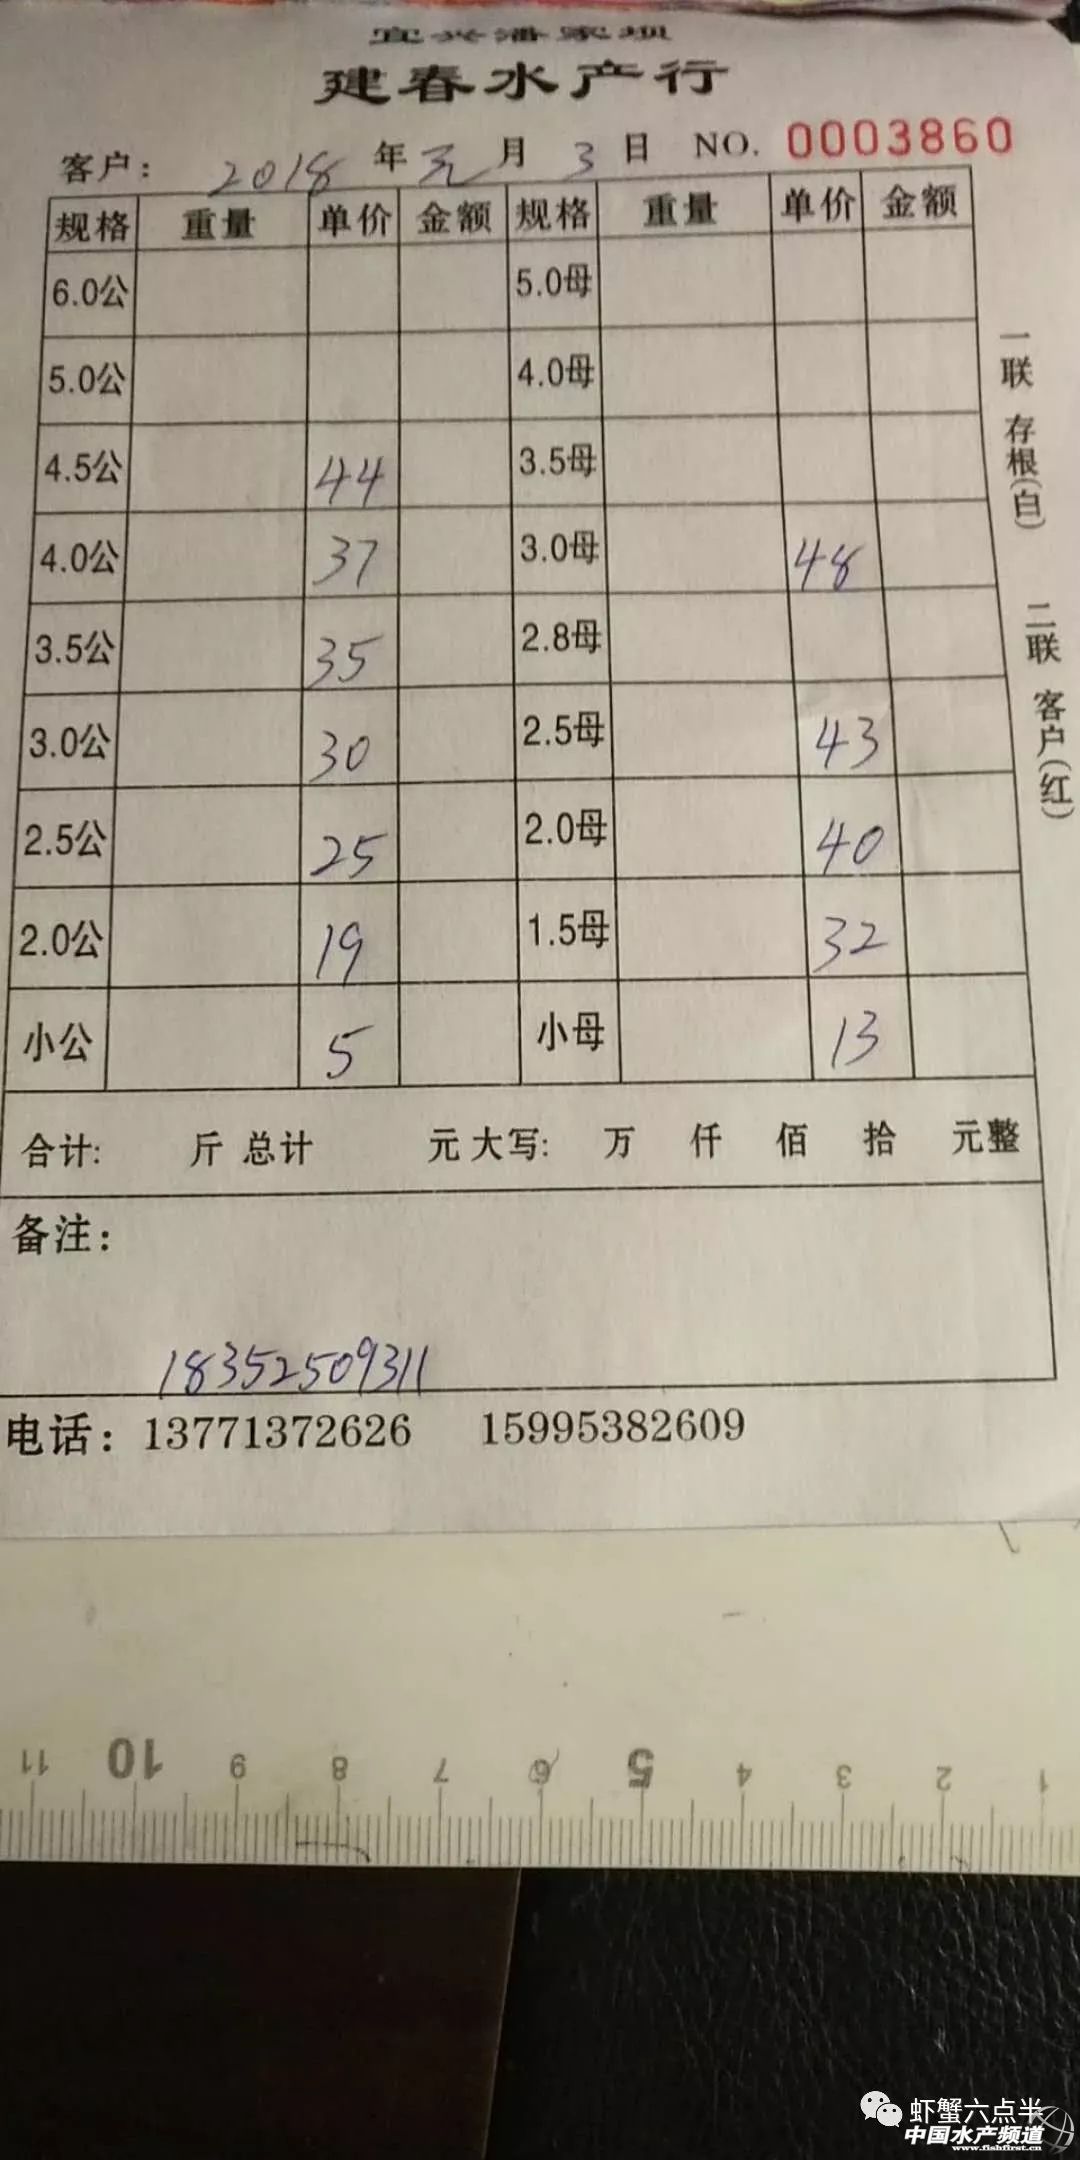 宜兴潘家坝
建春水产行
客户: 2018 年 元 月 3 日 NO. 0003860
规格 重量 单价 金额 规格 重量 单价 金额
6.0公 5.0母
5.0公 4.0母
4.5公 44 3.5母
4.0公 37 3.0母 48
3.5公 35 2.8母
3.0公 30 2.5母 43
2.5公 25 2.0母 40
2.0公 19 1.5母 32
小公 5 小母 13
合计: 斤 总计 元 大写: 万 仟 佰 拾 元整
备注:
18352509311
电话: 13771372626 15995382609
一联 存根(白) 二联 客户(红)
11 10 9 8 7 6 5 4 3 2 1
虾蟹六点半
中国水产频道
www.fishfirst.cn